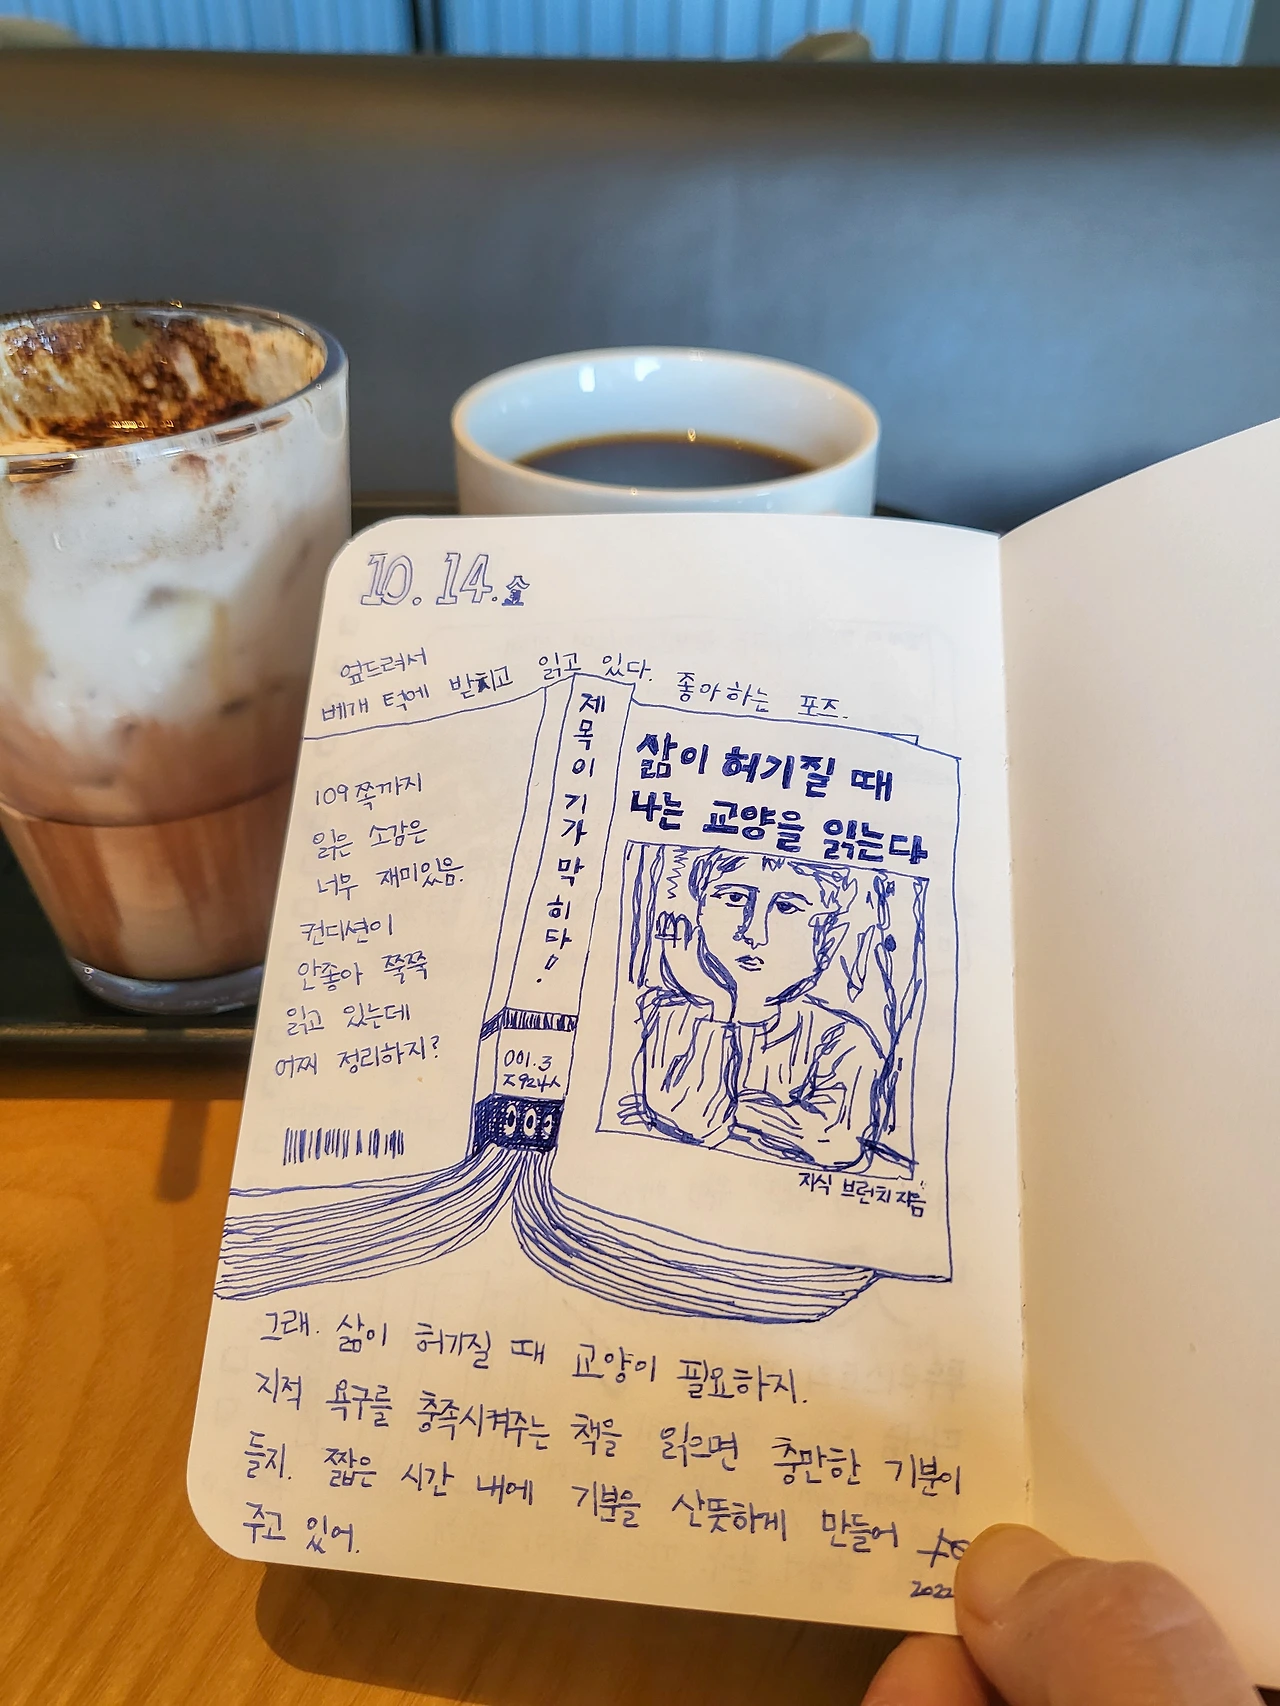 10. 14.
엎드려서
베개 턱에 받치고 읽고 있다. 좋아하는 포즈.
109쪽까지
읽은 소감은
너무 재미있음.
컨디션이
안좋아 쭉쭉
읽고 있는데
어찌 정리하지?
제목이 기가 막히다!
001.3
ㅈ924ㅅ
삶이 허기질 때
나는 교양을 읽는다
지식 브런치 지음
그래. 삶이 허기질 때 교양이 필요하지.
지적 욕구를 충족시켜주는 책을 읽으면 충만한 기분이
들지. 짧은 시간 내에 기분을 산뜻하게 만들어
주고 있어.
2022